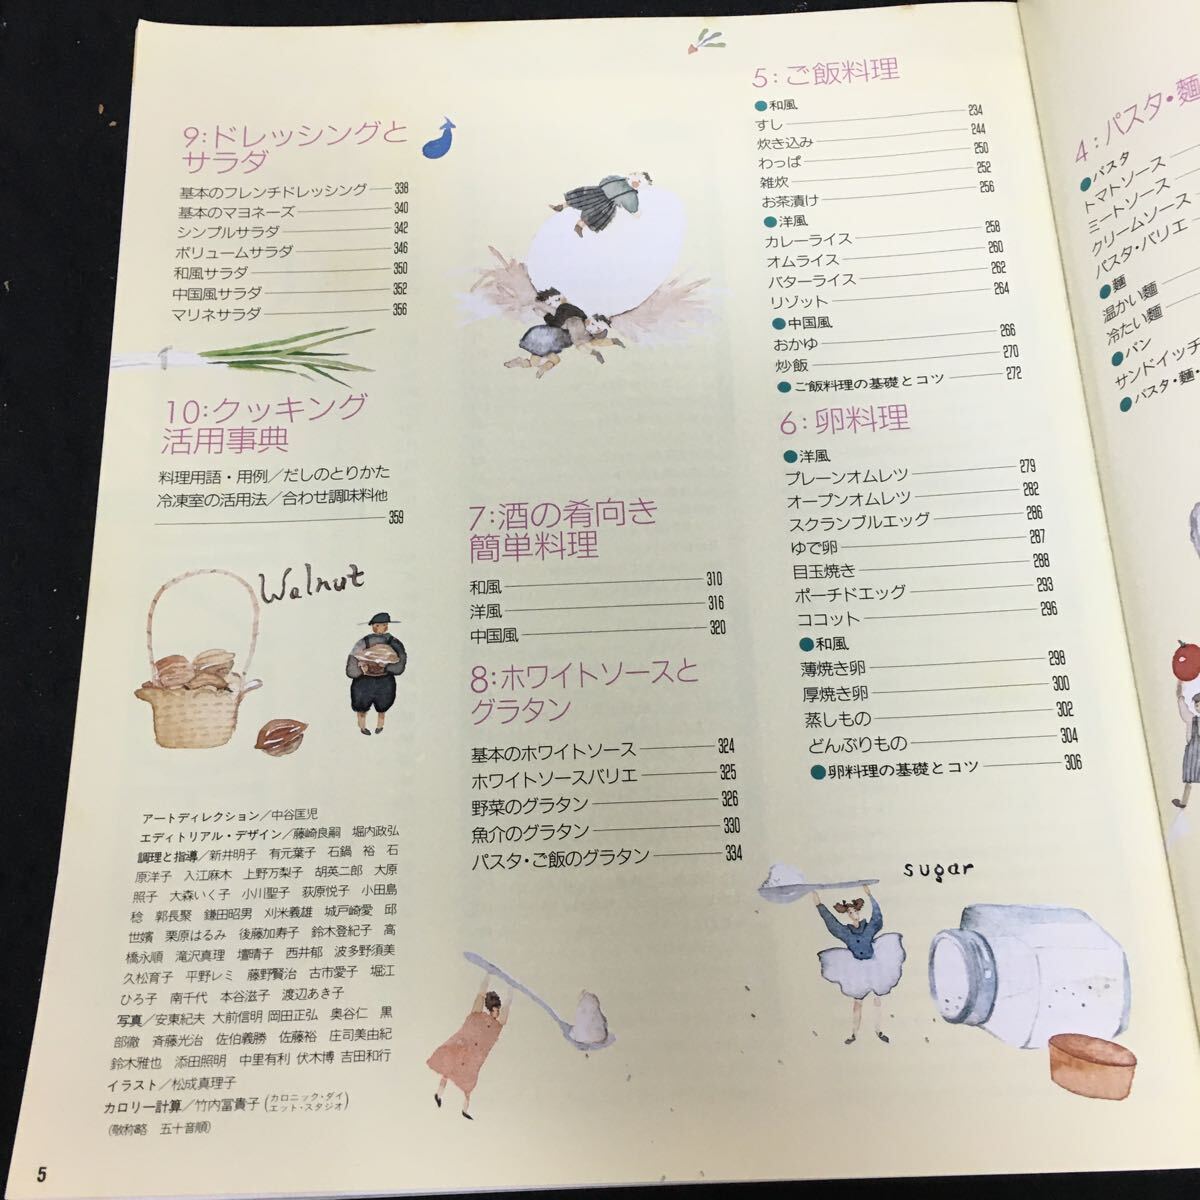 5:ご飯料理
●和風
すし 234
炊き込み 244
わっぱ 250
雑炊 252
お茶漬け 256
●洋風
カレーライス 258
オムライス 260
バターライス 262
リゾット 264
●中国風
おかゆ 266
炒飯 270
●ご飯料理の基礎とコツ 272
6:卵料理
●洋風
プレーンオムレツ 279
オープンオムレツ 282
スクランブルエッグ 286
ゆで卵 287
目玉焼き 288
ポーチドエッグ 293
ココット 296
●和風
薄焼き卵 298
厚焼き卵 300
蒸しもの 302
どんぶりもの 304
●卵料理の基礎とコツ 306
sugar
7:酒の肴向き
簡単料理
和風 310
洋風 316
中国風 320
8:ホワイトソースと
グラタン
基本のホワイトソース 324
ホワイトソースバリエ 325
野菜のグラタン 326
魚介のグラタン 330
パスタ・ご飯のグラタン 334
9:ドレッシングと
サラダ
基本のフレンチドレッシング 338
基本のマヨネーズ 340
シンプルサラダ 342
ボリュームサラダ 346
和風サラダ 350
中国風サラダ 352
マリネサラダ 356
10:クッキング
活用事典
料理用語・用例/だしのとりかた
冷凍室の活用法/合わせ調味料他
359
Walnut
アートディレクション/中谷匡児
エディトリアル・デザイン/藤崎良嗣 堀内政弘
調理と指導/新井明子 有元葉子 石鍋 裕 石
原洋子 入江麻木 上野万梨子 胡英二郎 大原
照子 大森いく子 小川聖子 荻原悦子 小田島
稔 郭長聚 鎌田昭男 刈米義雄 城戸崎愛 邱
世嬪 栗原はるみ 後藤加寿子 鈴木登紀子 高
橋永順 滝沢真理 壇晴子 西井郁 波多野須美
久松育子 平野レミ 藤野賢治 古市愛子 堀江
ひろ子 南千代 本谷滋子 渡辺あき子
写真/安東紀夫 大前信明 岡田正弘 奥谷仁 黒
部徹 斉藤光治 佐伯義勝 佐藤裕 庄司美由紀
鈴木雅也 添田照明 中里有利 伏木博 吉田和行
イラスト/松成真理子
カロリー計算/竹内冨貴子(カロニック・ダイ
エット・スタジオ)
(敬称略 五十音順)
5
4:パスタ・麺
●パスタ
トマトソース
ミートソース
クリームソース
パスタ・バリエ
●麺
温かい麺
冷たい麺
●パン
サンドイッチ
●パスタ・麺・